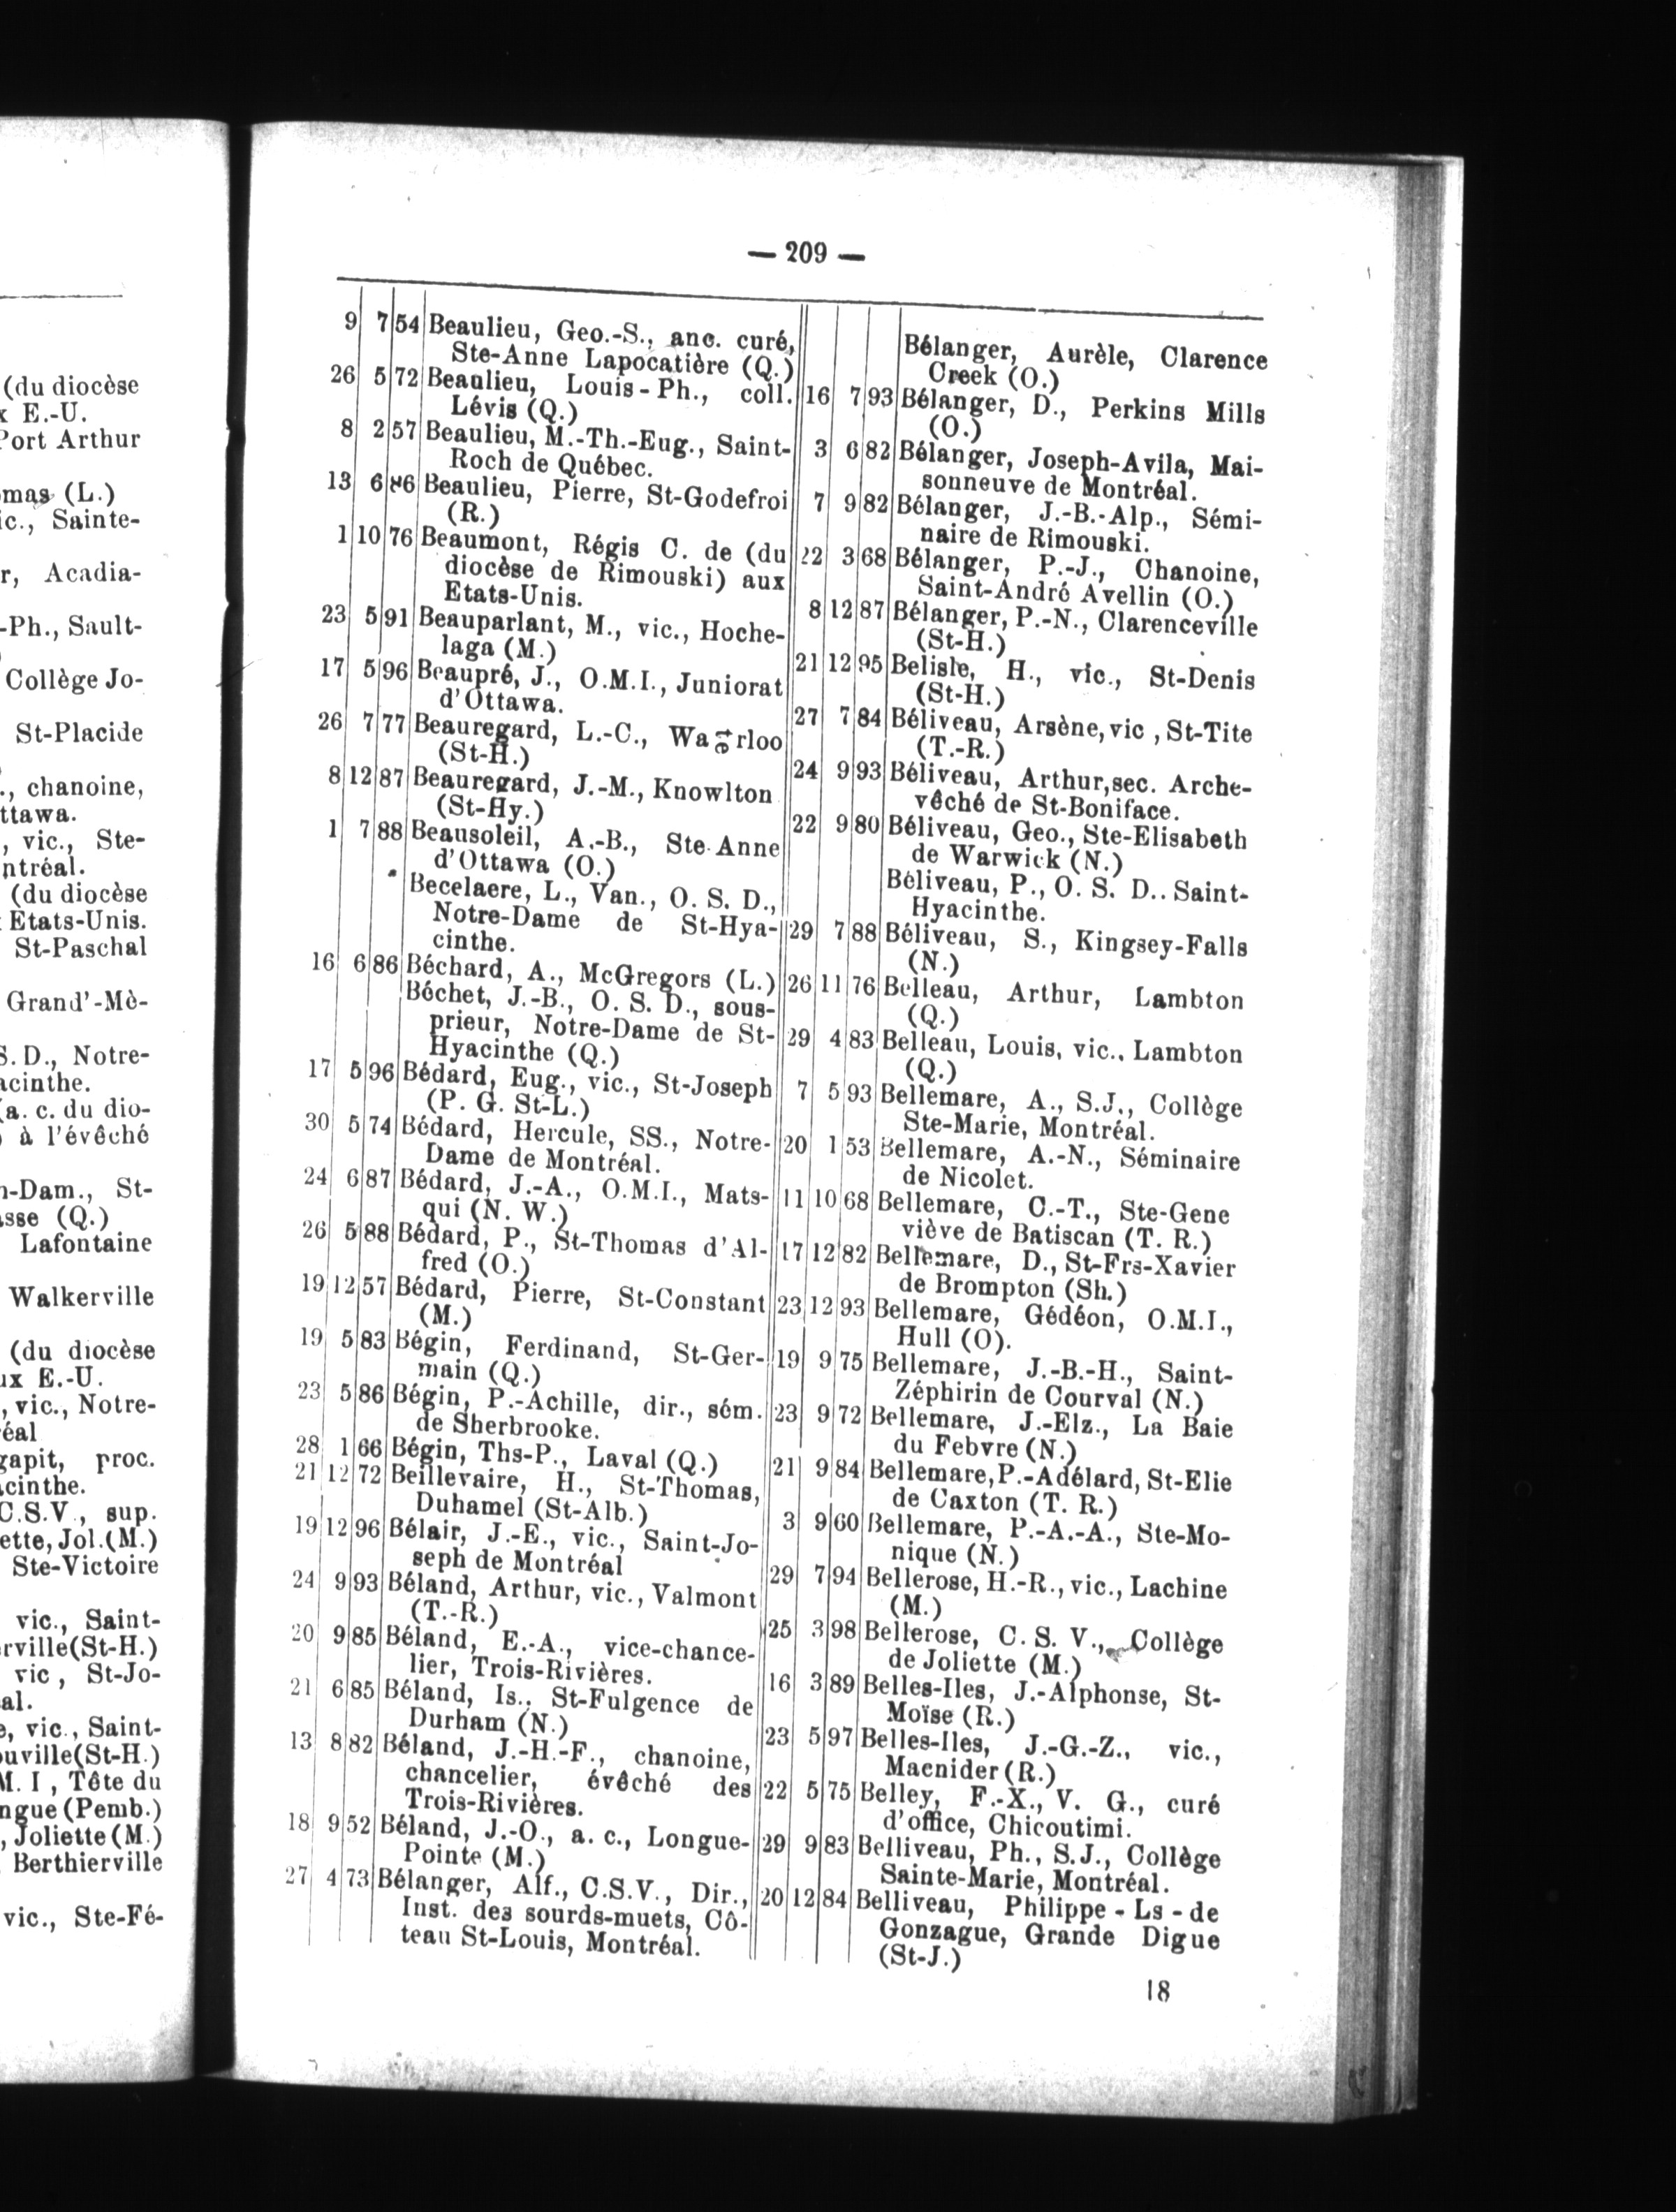 (du diocèse
x E.-U.
Port Arthur
mas (L.)
ic., Sainte-
r, Acadia-
-Ph., Sault-
Collège Jo-
St-Placide
., chanoine,
ttawa.
, vic., Ste-
ntréal.
(du diocèse
Etats-Unis.
St-Paschal
Grand'-Mè-
S. D., Notre-
acinthe.
(a. c. du dio-
à l'évêché
n-Dam., St-
asse (Q.)
Lafontaine
Walkerville
(du diocèse
ux E.-U.
, vic., Notre-
réal
gapit, proc.
acinthe.
C.S.V., sup.
ette, Jol.(M.)
Ste-Victoire
vic., Saint-
rville(St-H.)
vic, St-Jo-
al.
e, vic., Saint-
ouville(St-H.)
M. I, Tête du
ngue (Pemb.)
, Joliette (M.)
Berthierville
vic., Ste-Fé-
— 209 —
9 7 54 Beaulieu, Geo.-S., anc. curé,
Ste-Anne Lapocatière (Q.)
26 5 72 Beaulieu, Louis-Ph., coll.
Lévis (Q.)
8 2 57 Beaulieu, M.-Th.-Eug., Saint-
Roch de Québec.
13 6 86 Beaulieu, Pierre, St-Godefroi
(R.)
1 10 76 Beaumont, Régis C. de (du
diocèse de Rimouski) aux
Etats-Unis.
23 5 91 Beauparlant, M., vic., Hoche-
laga (M.)
17 5 96 Beaupré, J., O.M.I., Juniorat
d'Ottawa.
26 7 77 Beauregard, L.-C., Waterloo
(St-H.)
8 12 87 Beauregard, J.-M., Knowlton
(St-Hy.)
1 7 88 Beausoleil, A.-B., Ste-Anne
d'Ottawa (O.)
Becelaere, L., Van., O. S. D.,
Notre-Dame de St-Hya-
cinthe.
16 6 86 Béchard, A., McGregors (L.)
Béchet, J.-B., O. S. D., sous-
prieur, Notre-Dame de St-
Hyacinthe (Q.)
17 5 96 Bédard, Eug., vic., St-Joseph
(P. G. St-L.)
30 5 74 Bédard, Hercule, SS., Notre-
Dame de Montréal.
24 6 87 Bédard, J.-A., O.M.I., Mats-
qui (N. W.)
26 5 88 Bédard, P., St-Thomas d'Al-
fred (O.)
19 12 57 Bédard, Pierre, St-Constant
(M.)
19 5 83 Bégin, Ferdinand, St-Ger-
main (Q.)
23 5 86 Bégin, P.-Achille, dir., sém.
de Sherbrooke.
28 1 66 Bégin, Ths-P., Laval (Q.)
21 12 72 Beillevaire, H., St-Thomas,
Duhamel (St-Alb.)
19 12 96 Bélair, J.-E., vic., Saint-Jo-
seph de Montréal
24 9 93 Béland, Arthur, vic., Valmont
(T.-R.)
20 9 85 Béland, E.-A., vice-chance-
lier, Trois-Rivières.
21 6 85 Béland, Is., St-Fulgence de
Durham (N.)
13 8 82 Béland, J.-H.-F., chanoine,
chancelier, évêché des
Trois-Rivières.
18 9 52 Béland, J.-O., a. c., Longue-
Pointe (M.)
27 4 73 Bélanger, Alf., C.S.V., Dir.,
Inst. des sourds-muets, Cô-
teau St-Louis, Montréal.
Bélanger, Aurèle, Clarence
Creek (O.)
16 7 93 Bélanger, D., Perkins Mills
(O.)
3 6 82 Bélanger, Joseph-Avila, Mai-
sonneuve de Montréal.
7 9 82 Bélanger, J.-B.-Alp., Sémi-
naire de Rimouski.
22 3 68 Bélanger, P.-J., Chanoine,
Saint-André Avellin (O.)
8 12 87 Bélanger, P.-N., Clarenceville
(St-H.)
21 12 95 Belisle, H., vic., St-Denis
(St-H.)
27 7 84 Béliveau, Arsène, vic, St-Tite
(T.-R.)
24 9 93 Béliveau, Arthur, sec. Arche-
vêché de St-Boniface.
22 9 80 Béliveau, Geo., Ste-Elisabeth
de Warwick (N.)
Béliveau, P., O. S. D.. Saint-
Hyacinthe.
29 7 88 Béliveau, S., Kingsey-Falls
(N.)
26 11 76 Belleau, Arthur, Lambton
(Q.)
29 4 83 Belleau, Louis, vic., Lambton
(Q.)
7 5 93 Bellemare, A., S.J., Collège
Ste-Marie, Montréal.
20 1 53 Bellemare, A.-N., Séminaire
de Nicolet.
11 10 68 Bellemare, C.-T., Ste-Gene
viève de Batiscan (T. R.)
17 12 82 Bellemare, D., St-Frs-Xavier
de Brompton (Sh.)
23 12 93 Bellemare, Gédéon, O.M.I.,
Hull (O).
19 9 75 Bellemare, J.-B.-H., Saint-
Zéphirin de Courval (N.)
23 9 72 Bellemare, J.-Elz., La Baie
du Febvre (N.)
21 9 84 Bellemare, P.-Adélard, St-Elie
de Caxton (T. R.)
3 9 60 Bellemare, P.-A.-A., Ste-Mo-
nique (N.)
29 7 94 Bellerose, H.-R., vic., Lachine
(M.)
25 3 98 Bellerose, C. S. V., Collège
de Joliette (M.)
16 3 89 Belles-Iles, J.-Alphonse, St-
Moïse (R.)
23 5 97 Belles-Iles, J.-G.-Z., vic.,
Macnider (R.)
22 5 75 Belley, F.-X., V. G., curé
d'office, Chicoutimi.
29 9 83 Belliveau, Ph., S.J., Collège
Sainte-Marie, Montréal.
20 12 84 Belliveau, Philippe-Ls-de
Gonzague, Grande Digue
(St-J.)
18